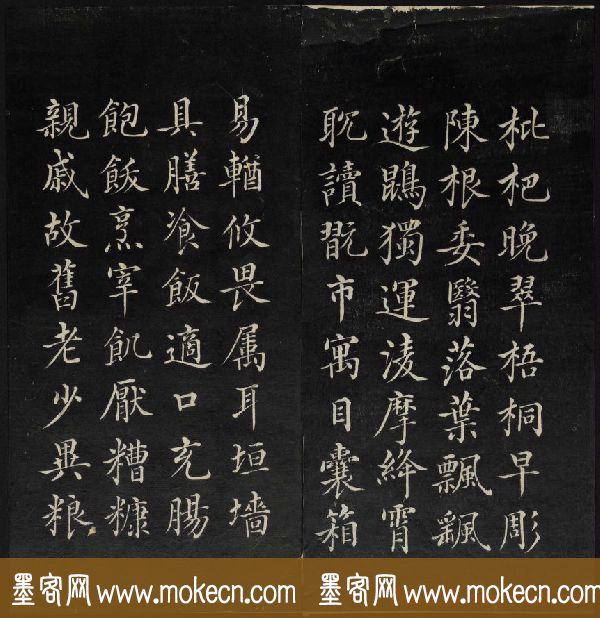 枇杷晚翠梧桐早彫
陳根委翳落葉飄颻
遊鵾獨運淩摩絳霄
耽讀翫市寓目囊箱
易輶攸畏属耳垣墻
具膳飡飯適口充腸
飽飫烹宰飢厭糟糠
親戚故舊老少異粮
墨客网 www.mokecn.com 墨客网 www.mokecn.com